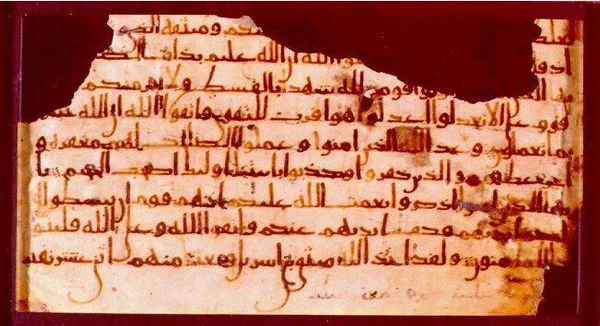 عليكم وميثقه الذي
واتقوا الله ان الله عليم بذات الصدور
كونوا قومين لله شهدا بالقسط ولا يجرمنكم
قوم على الا تعدلوا اعدلوا هو اقرب للتقوى واتقوا الله ان الله
بما تعملون وعد الله الذين امنوا وعملوا الصلحت لهم مغفرة و
اجر عظيم والذين كفروا وكذبوا بايتنا اوليك اصحب الجحيم يا
ايها الذين امنوا اذكروا نعمت الله عليكم اذ هم قوم ان يبسطوا
اليكم ايديهم فكف ايديهم عنكم واتقوا الله وعلى الله فليتو
كل المومنون ولقد اخذ الله ميثق بني اسريل وبعثنا منهم اثني عشر نقيبا